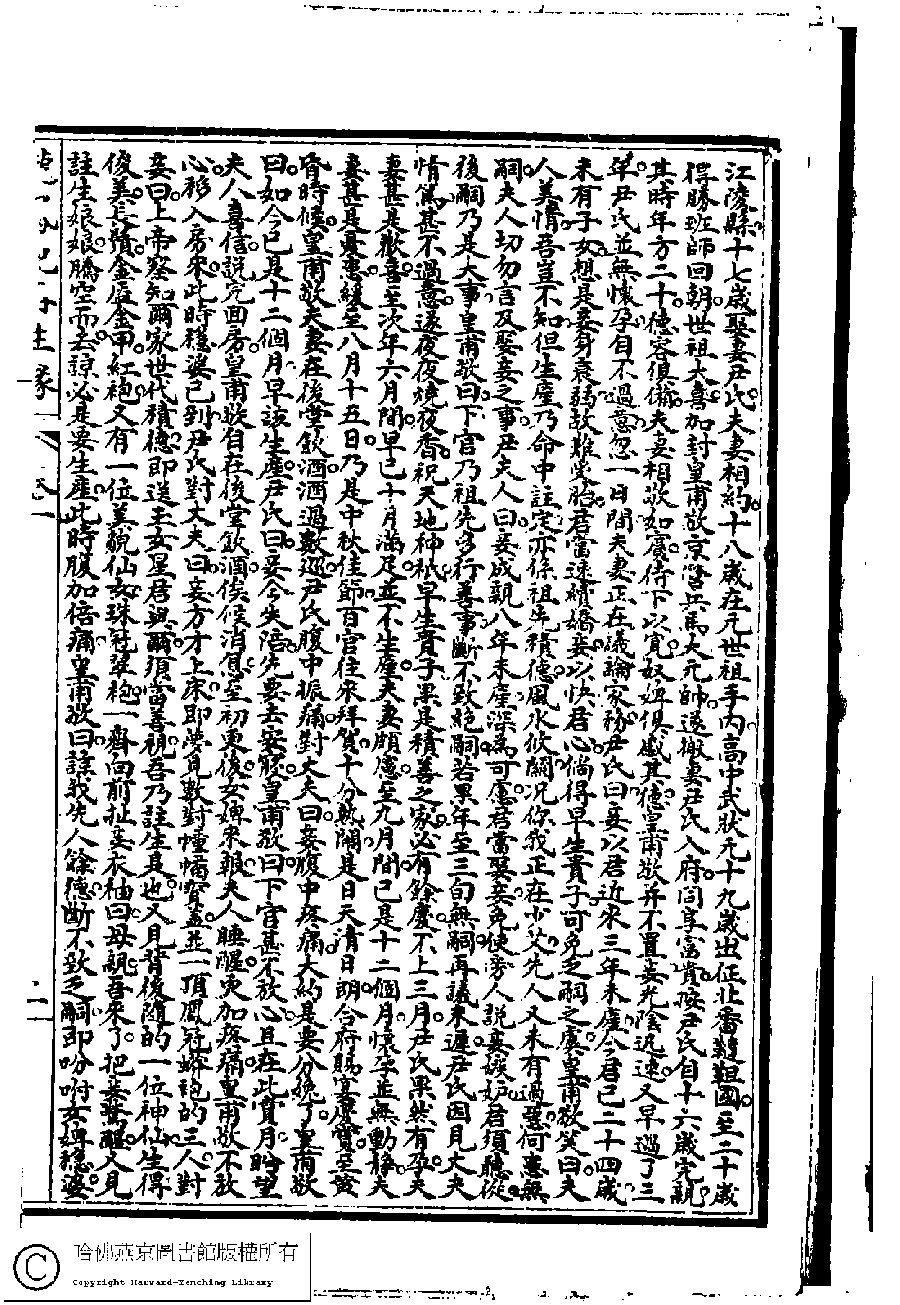 江陵縣十七歲娶妻尹氏夫妻相約十八歲在元世祖手內高中武狀元十九歲出征北番韃靼國至二十歲
得勝班師回朝世祖大喜加封皇甫敬京營兵馬大元帥遂搬妻尹氏入府同享富貴按尹氏自十六歲完親
其時年方二十德容俱備夫妻相敬如賓待下以寬奴婢俱感其德皇甫敬并不置妾光陰迅速又早過了三
年尹氏並無懷孕自不過意忽一日間夫妻正在議論家務尹氏曰妾以君近來三年未產今君已二十四歲
未有子女想是妾身衰弱故難受胎君當速續嬌妾以快君心倘得早生貴子可免乏嗣之虞皇甫敬笑曰夫
人美情吾豈不知但生產乃命中註定亦係祖先積德風水攸關况你我正在少艾先人又未有過惡何患無
嗣夫人切勿言及娶妾之事尹夫人曰妾成親八年未產深為可慮君當娶妾免使旁人說妾嫉妒君須聽從
後嗣乃是大事皇甫敬曰下官乃祖先多行善事斷不致絕嗣若果年至三旬無嗣再議未遲尹氏因見丈夫
情篤甚不過意遂夜夜燒夜香祝天地神祇早生貴子果是積善之家必有餘慶不上三月尹氏果然有孕夫
妻甚是歡喜至次年六月間早已十月滿足並不生產夫妻頗慮至九月間已是十二個月懷孕並無動靜夫
妻甚是憂慮纔至八月十五日乃是中秋佳節百官往來拜賀十分熱鬧是日天清日朗合府賜宴慶賞至黃
昏時候皇甫敬夫妻在後堂飲酒酒過數巡尹氏腹中振痛對丈夫曰妾腹中疼痛大約是要分娩了皇甫敬
曰如今已是十二個月早該生產尹氏曰妾今失陪先要去安寢皇甫敬曰下官甚不放心且在此賞月盼望
夫人喜信說完回房皇甫敬自在後堂飲酒俟候消息至初更後女婢來報夫人睡醒更加疼痛皇甫敬不放
心移入房來此時穩婆已到尹氏對丈夫曰妾方才上床即夢見數對幢幡寶蓋並一頂鳳冠蟒袍的三人對
妾曰上帝察知爾家世代積德即送玉女星君與爾須當善視吾乃註生是也又見背後隨的一位神仙生得
俊美長鬚金盔金甲紅袍又有一位美貌仙女珠冠翠袍一齊向前扯妾衣袖曰母親吾來了把妾驚醒又見
註生娘娘騰空而去諒必是要生產此時腹加倍痛皇甫敬曰諒我先人餘德斷不致乏嗣即吩咐女婢穩婆
二
哈佛燕京圖書館版權所有
Copyright Harvard-Yenching Library